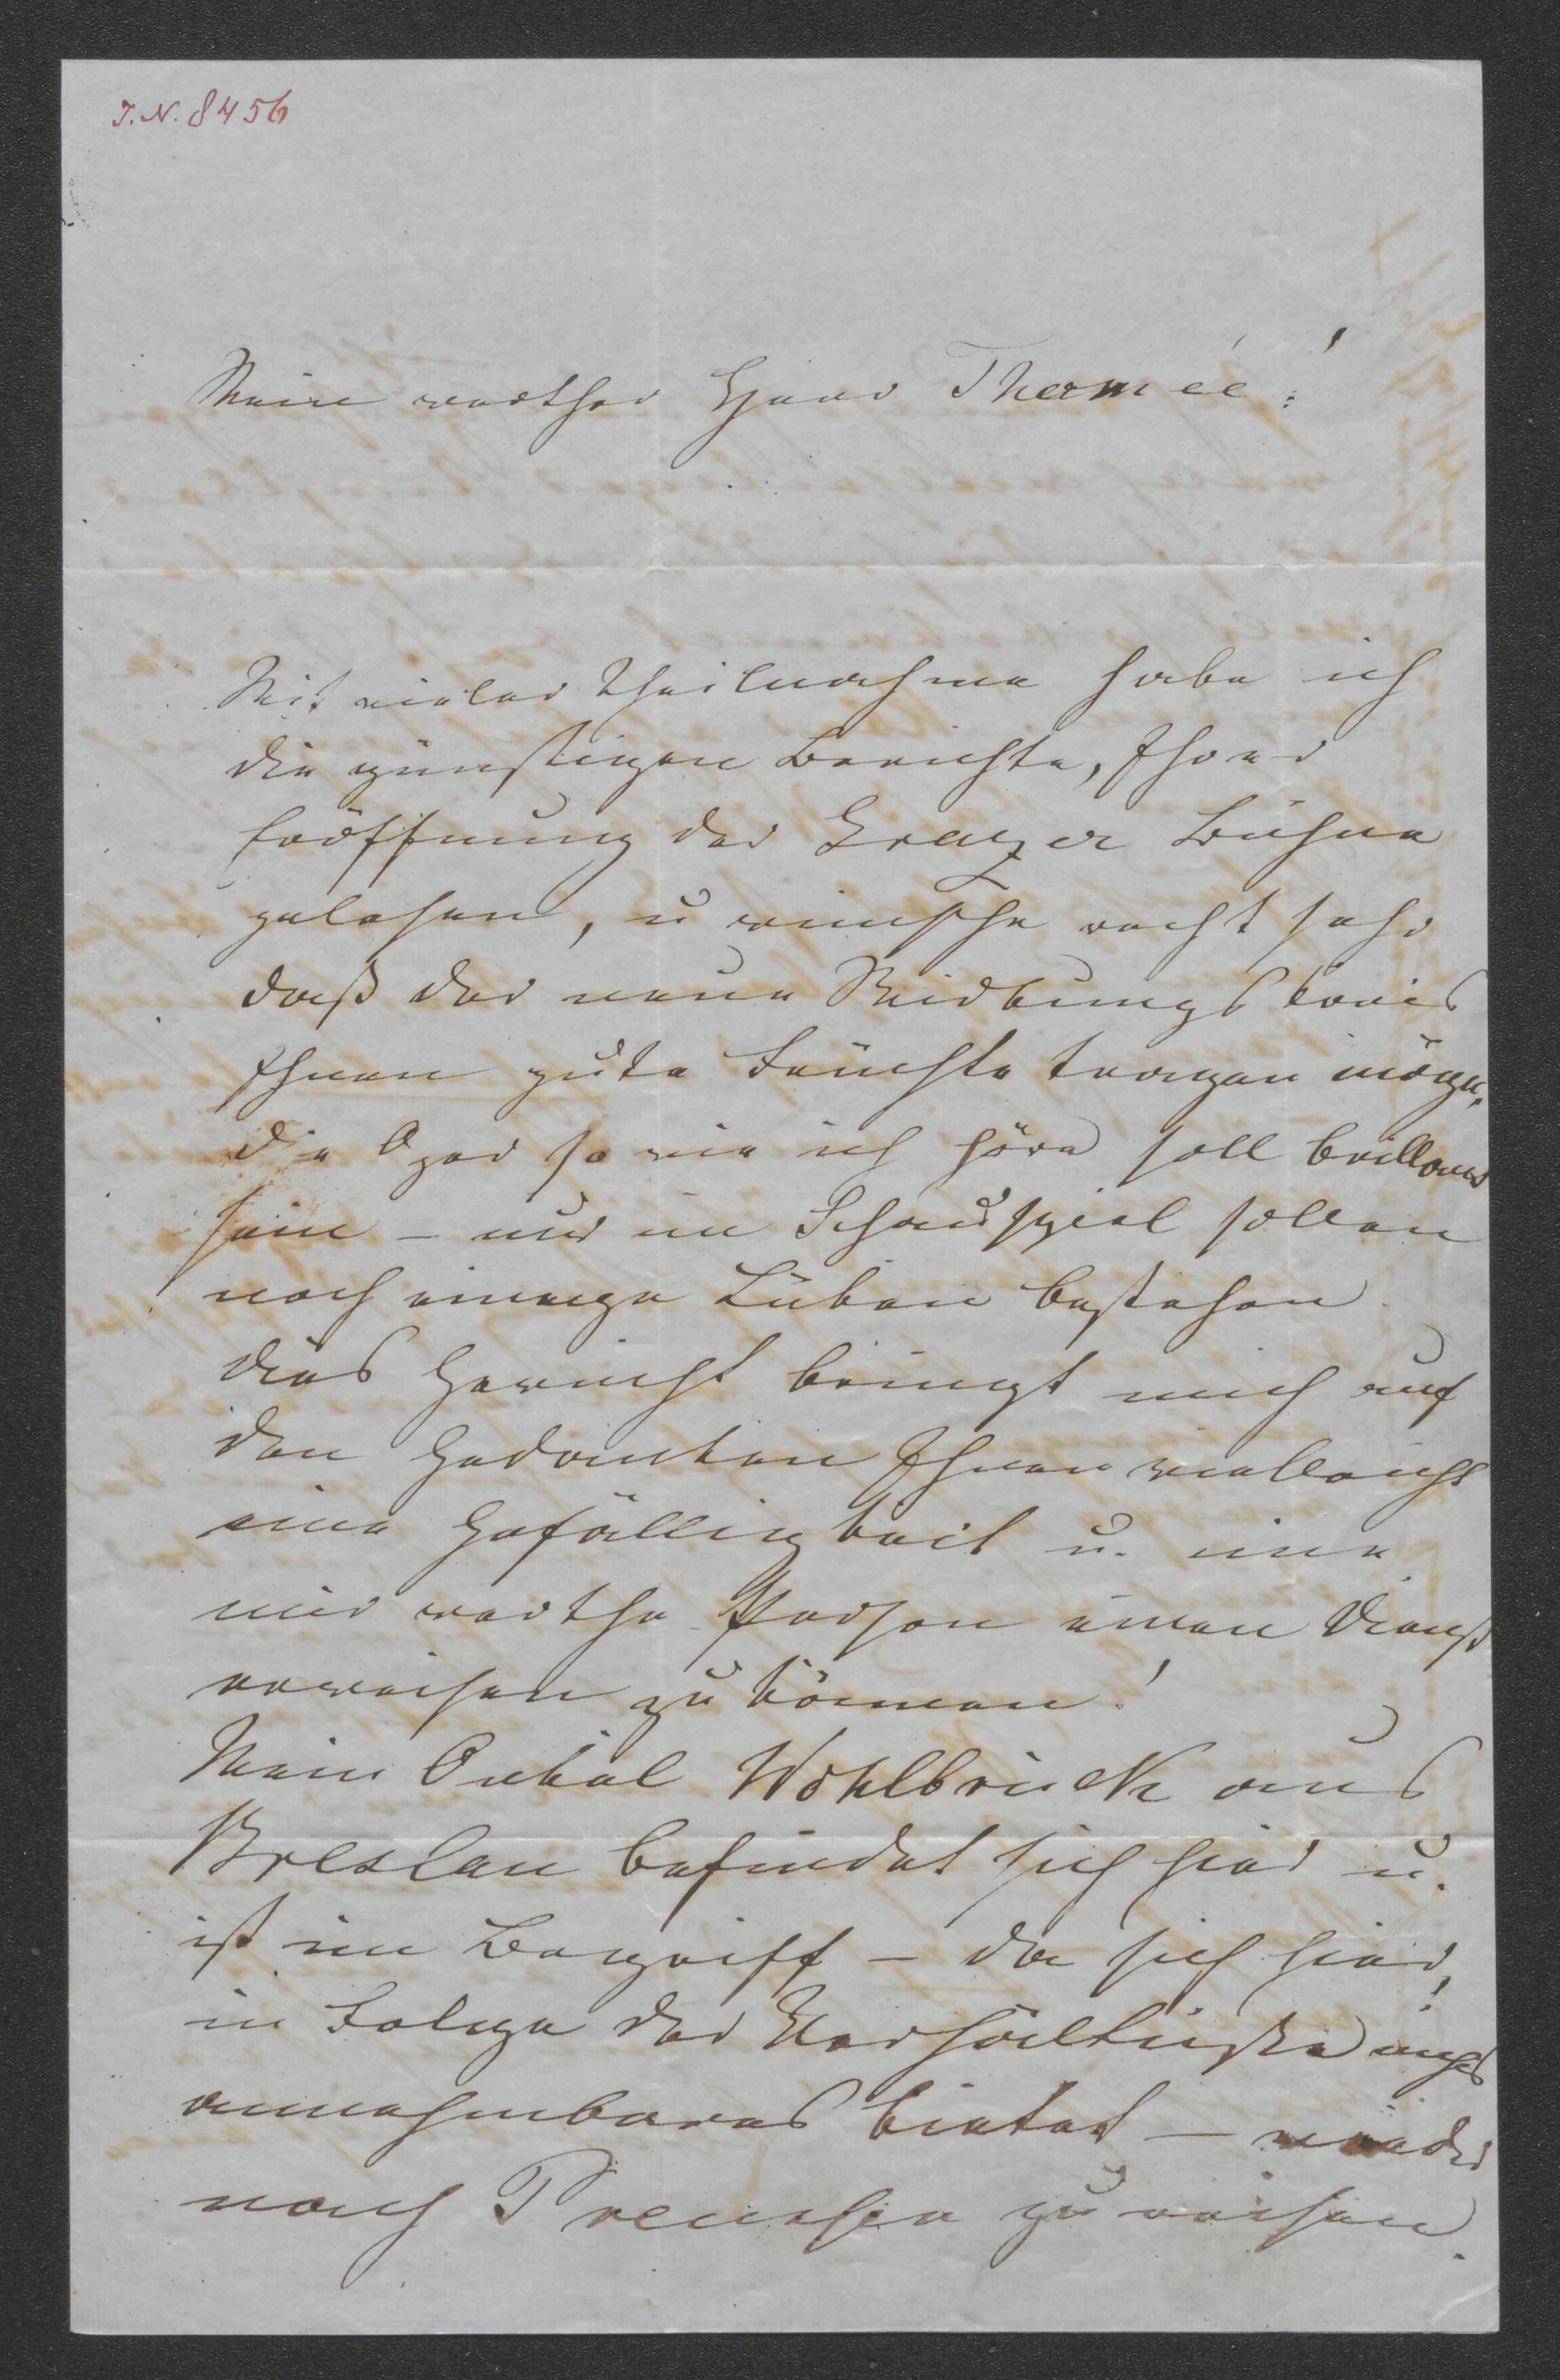 J.N. 8456
Mein werther Herr Themée!
Mit vieler Theilnahme habe ich
die günstigen Berichte, Ihrer
Eröffnung der Grazer Bühne
gelesen, u wünsche recht sehr
daß der neue Wirkungskreis
Ihnen gute Früchte tragen möge.
Die Oper so wie ich höre soll brillant
sein – nur im Schauspiel sollen
noch einige Lüken bestehen.
Dies Gerücht bringt mich auf
den Gedanken Ihnen vielleicht
eine Gefälligkeit u. eine
mir werthe Person einen Dienst
erweisen zu können!
Mein Onkel Wohlbrück aus
Breslau befindet sich hier u.
ist im Begriff – da sich hier,
in Folge der Verhältniße! nichts
annehmbares bietet – wieder
nach Preussen zu reisen.